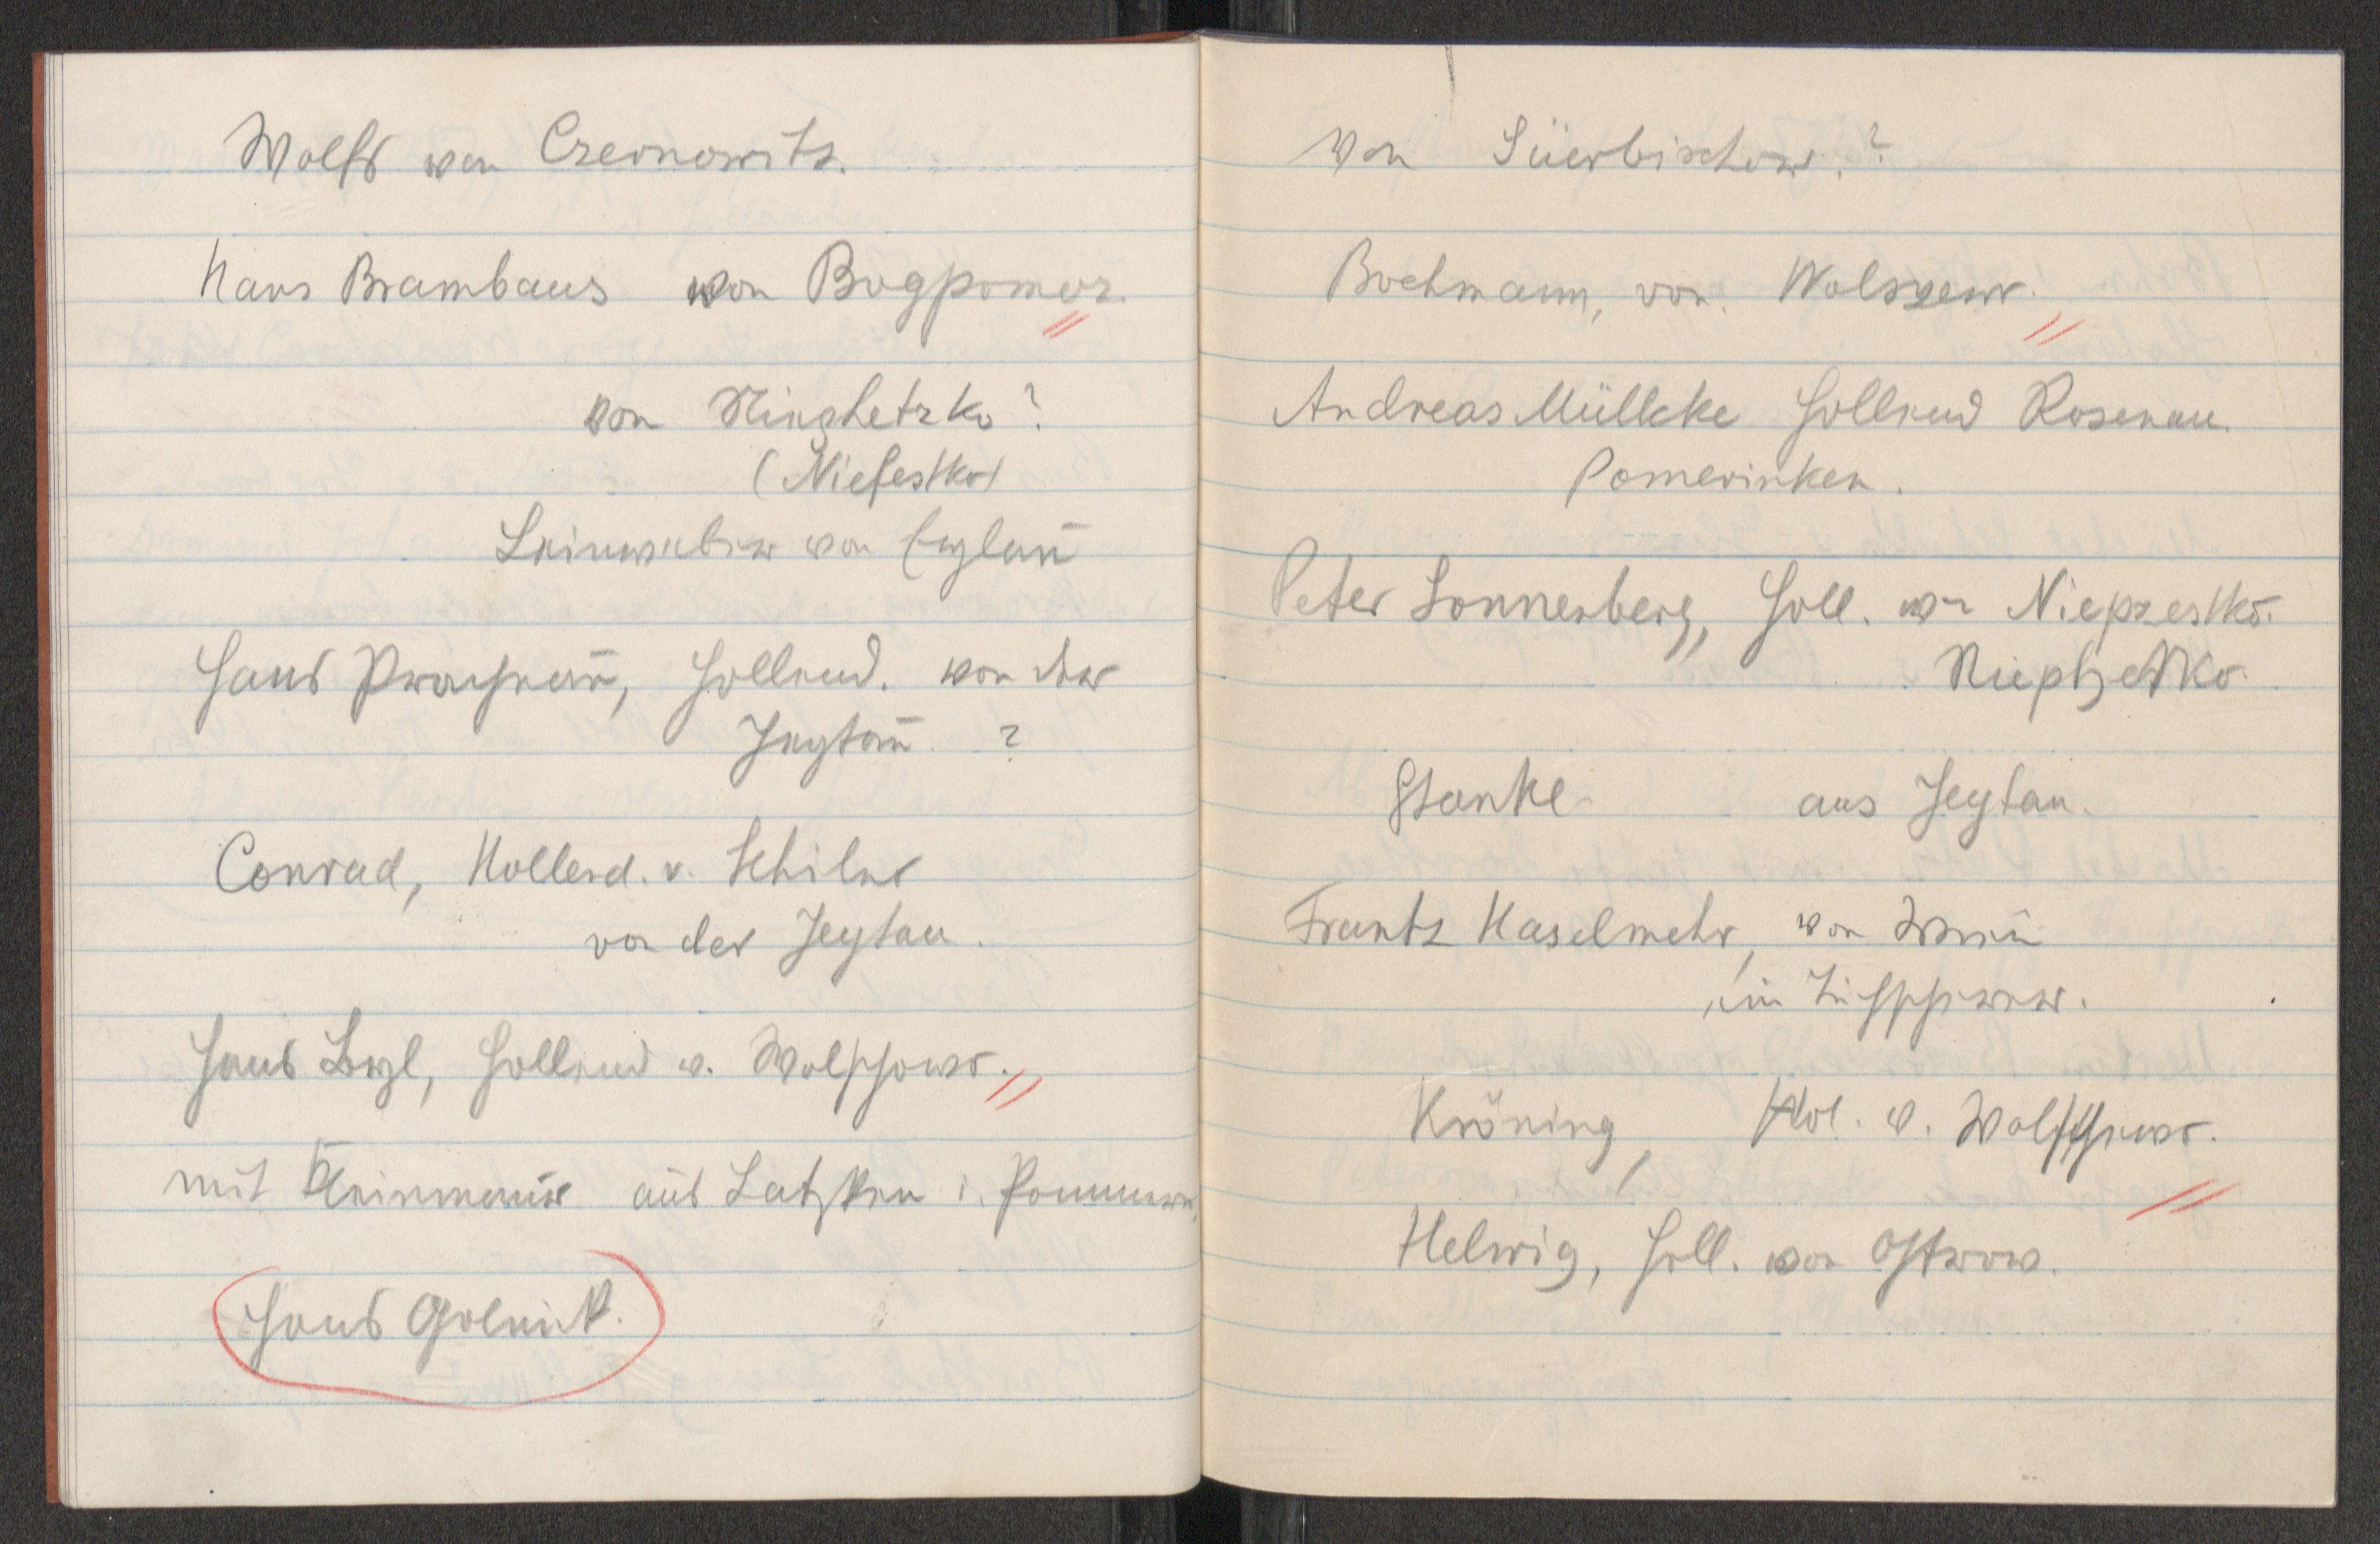 Wolff von Czernowitz.
Hans Brambaus von Bogpomoz.
von Nieschetzko?
(Niefestko)
Leinweber von Eylau
Hans Prachean, Hollend. von der
Jeytau. ?
Conrad, Hollend. v. Schilno
von der Jeytau.
Hans Lozl, Hollend v. Wolschow.
mit Kleinmann aus Latzken i. Pommern.
Hans Golnick.
von Süerbischow.?
Bochmann, von Wolszew.
Andreas Müllcke Hollend Rosenau
Pomerinken.
Peter Sonnenberg, Holl. von Niepzestko.
Nieptzestko.
Stanke aus Jeytau.
Frantz Haselmehr, von
im
Kröning, Hol. v. Wolffschew.
Helwig, Holl. von Ostrow.